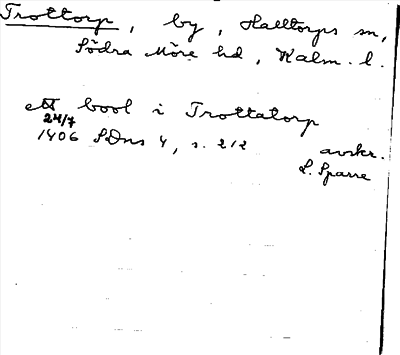 Trottorp, by, Halltorps sn,
Södra Möre hd, Kalm. l.
ett bool i Trottatorp
24/7
1406 SDns 4, s. 212
avskr.
L. Sparre